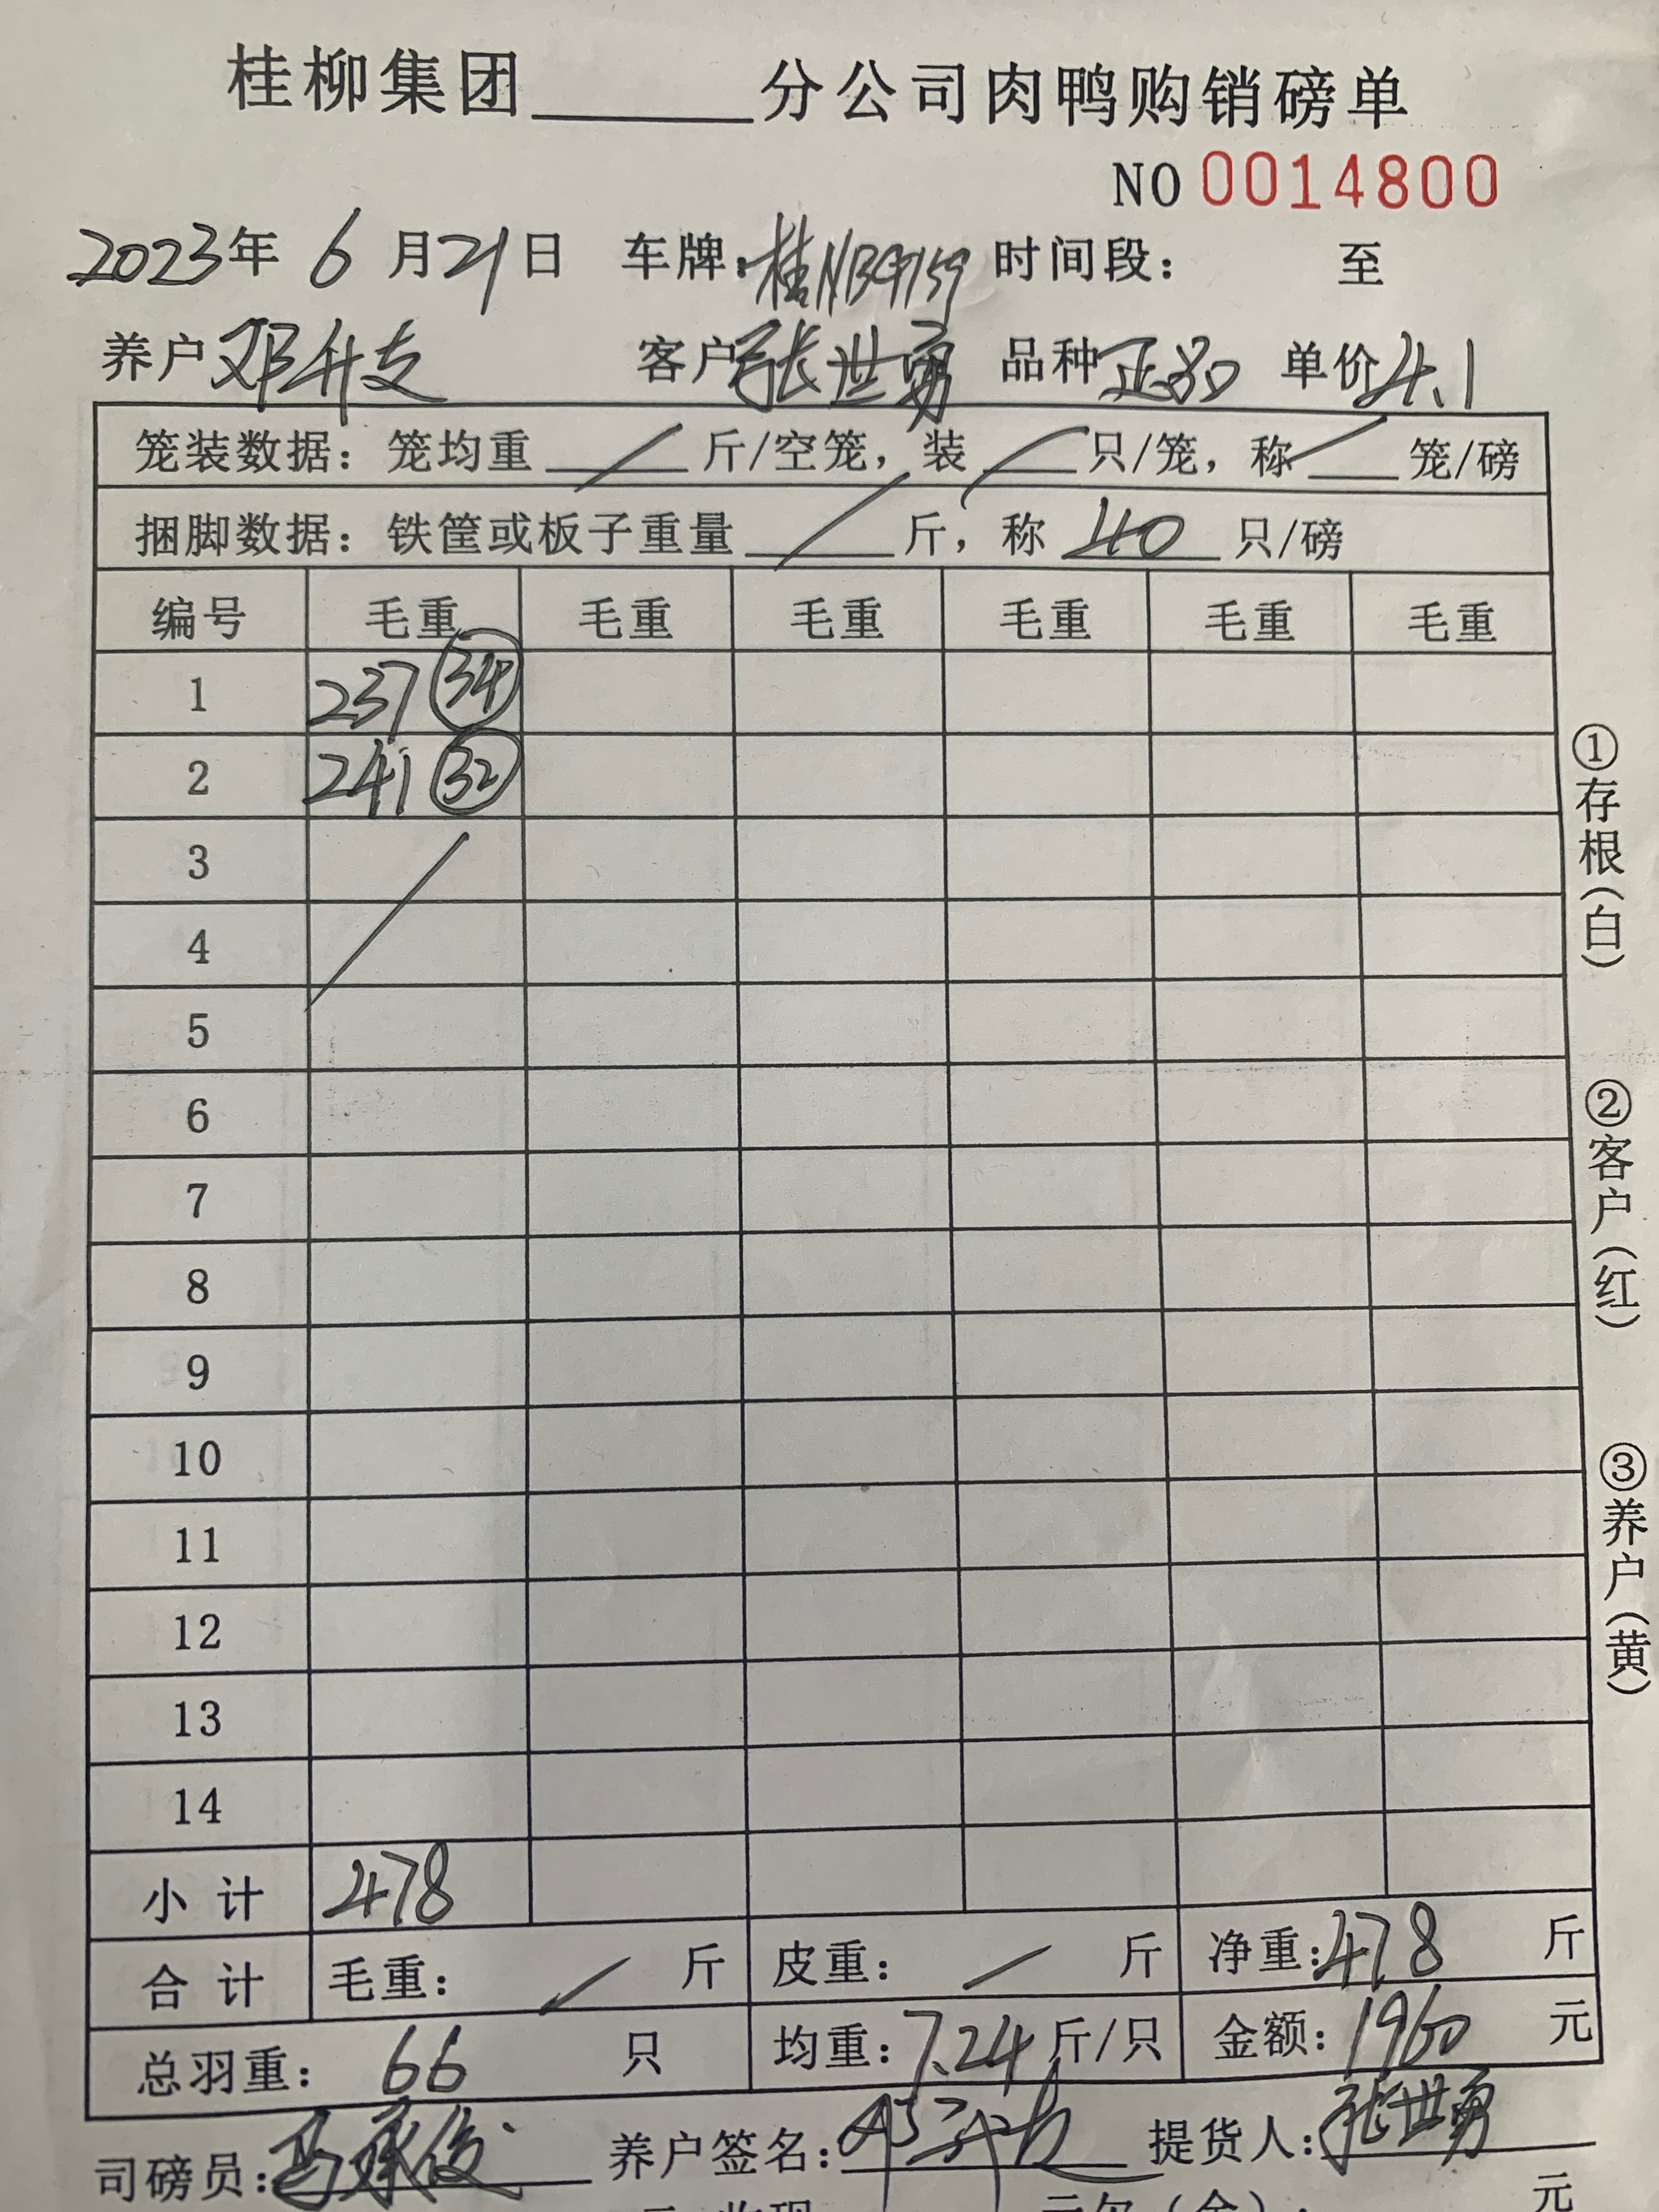 桂柳集团______分公司肉鸭购销磅单
NO 0014800
2023年 6 月 21 日 车牌:桂NB9159 时间段: 至
养户 邓升支 客户 张世勇 品种 正品 单价 4.1
笼装数据: 笼均重 / 斤/空笼, 装 / 只/笼, 称 / 笼/磅
捆脚数据: 铁筐或板子重量 / 斤, 称 40 只/磅
编号 毛重 毛重 毛重 毛重 毛重 毛重
1 237 34
2 241 32
3
4
5
6
7
8
9
10
11
12
13
14
小计 478
合计 毛重: / 斤 皮重: / 斤 净重: 478 斤
总羽重: 66 只 均重: 7.24 斤/只 金额: 1960 元
司磅员: 冯承俊 养户签名: 提货人: 张世勇
元
①存根(白)
②客户(红)
③养户(黄)